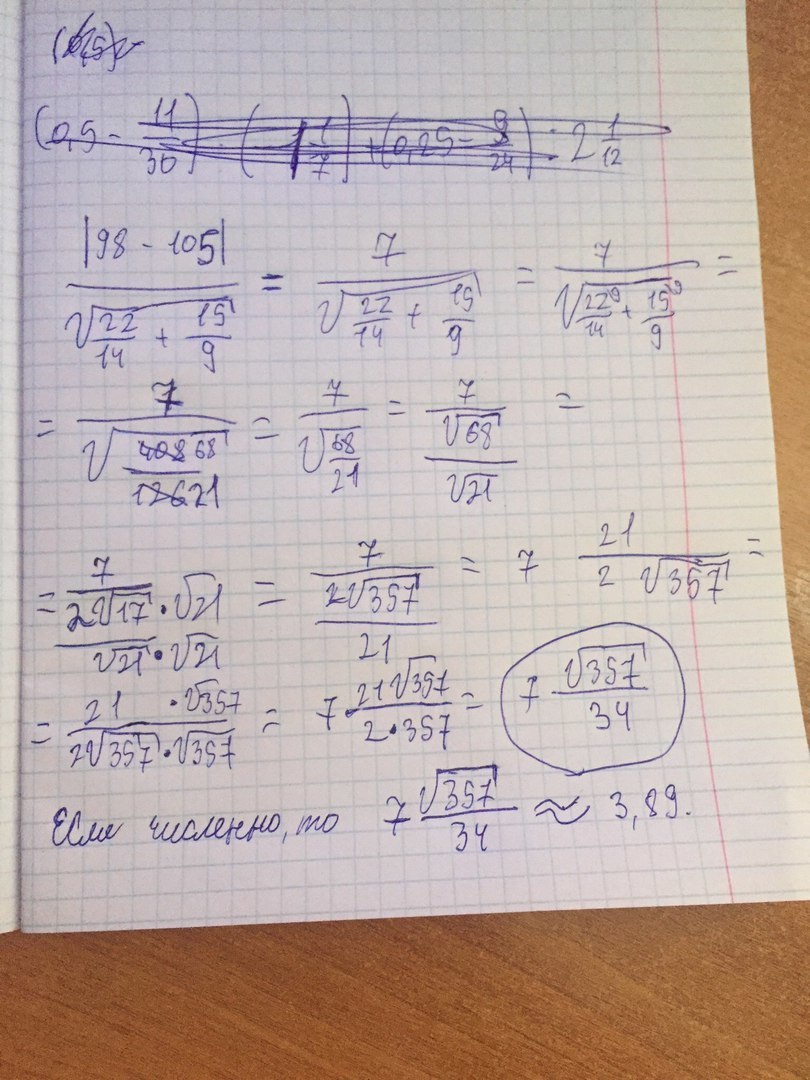 (0,5 - 11/30) : (1 1/7) + (0,25 - 9/24) : 2 1/12
|98 - 105| / √(22/14 + 15/9) = 7 / √(22/14 + 15/9) = 7 / √(22⁹/14 + 15⁹/9) =
= 7 / √(408 68 / 126 21) = 7 / √(68/21) = 7 / (√68 / √21) =
= 7 / (2√17 · √21 / √21 · √21) = 7 / (2√357 / 21) = 7 21 / 2 √357 =
= 21 · √357 / 2√357 · √357 = 7 · 21√357 / 2 · 357 = 7 √357 / 34
Если численно, то 7 √357 / 34 ≈ 3,89.